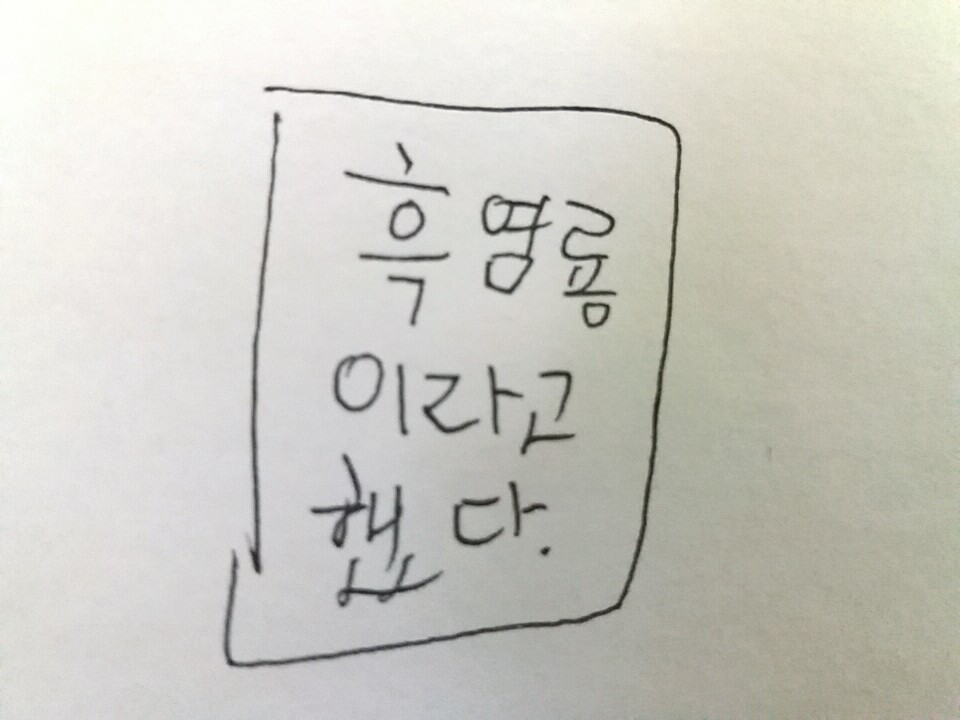 흑염룡
이라고
했다.